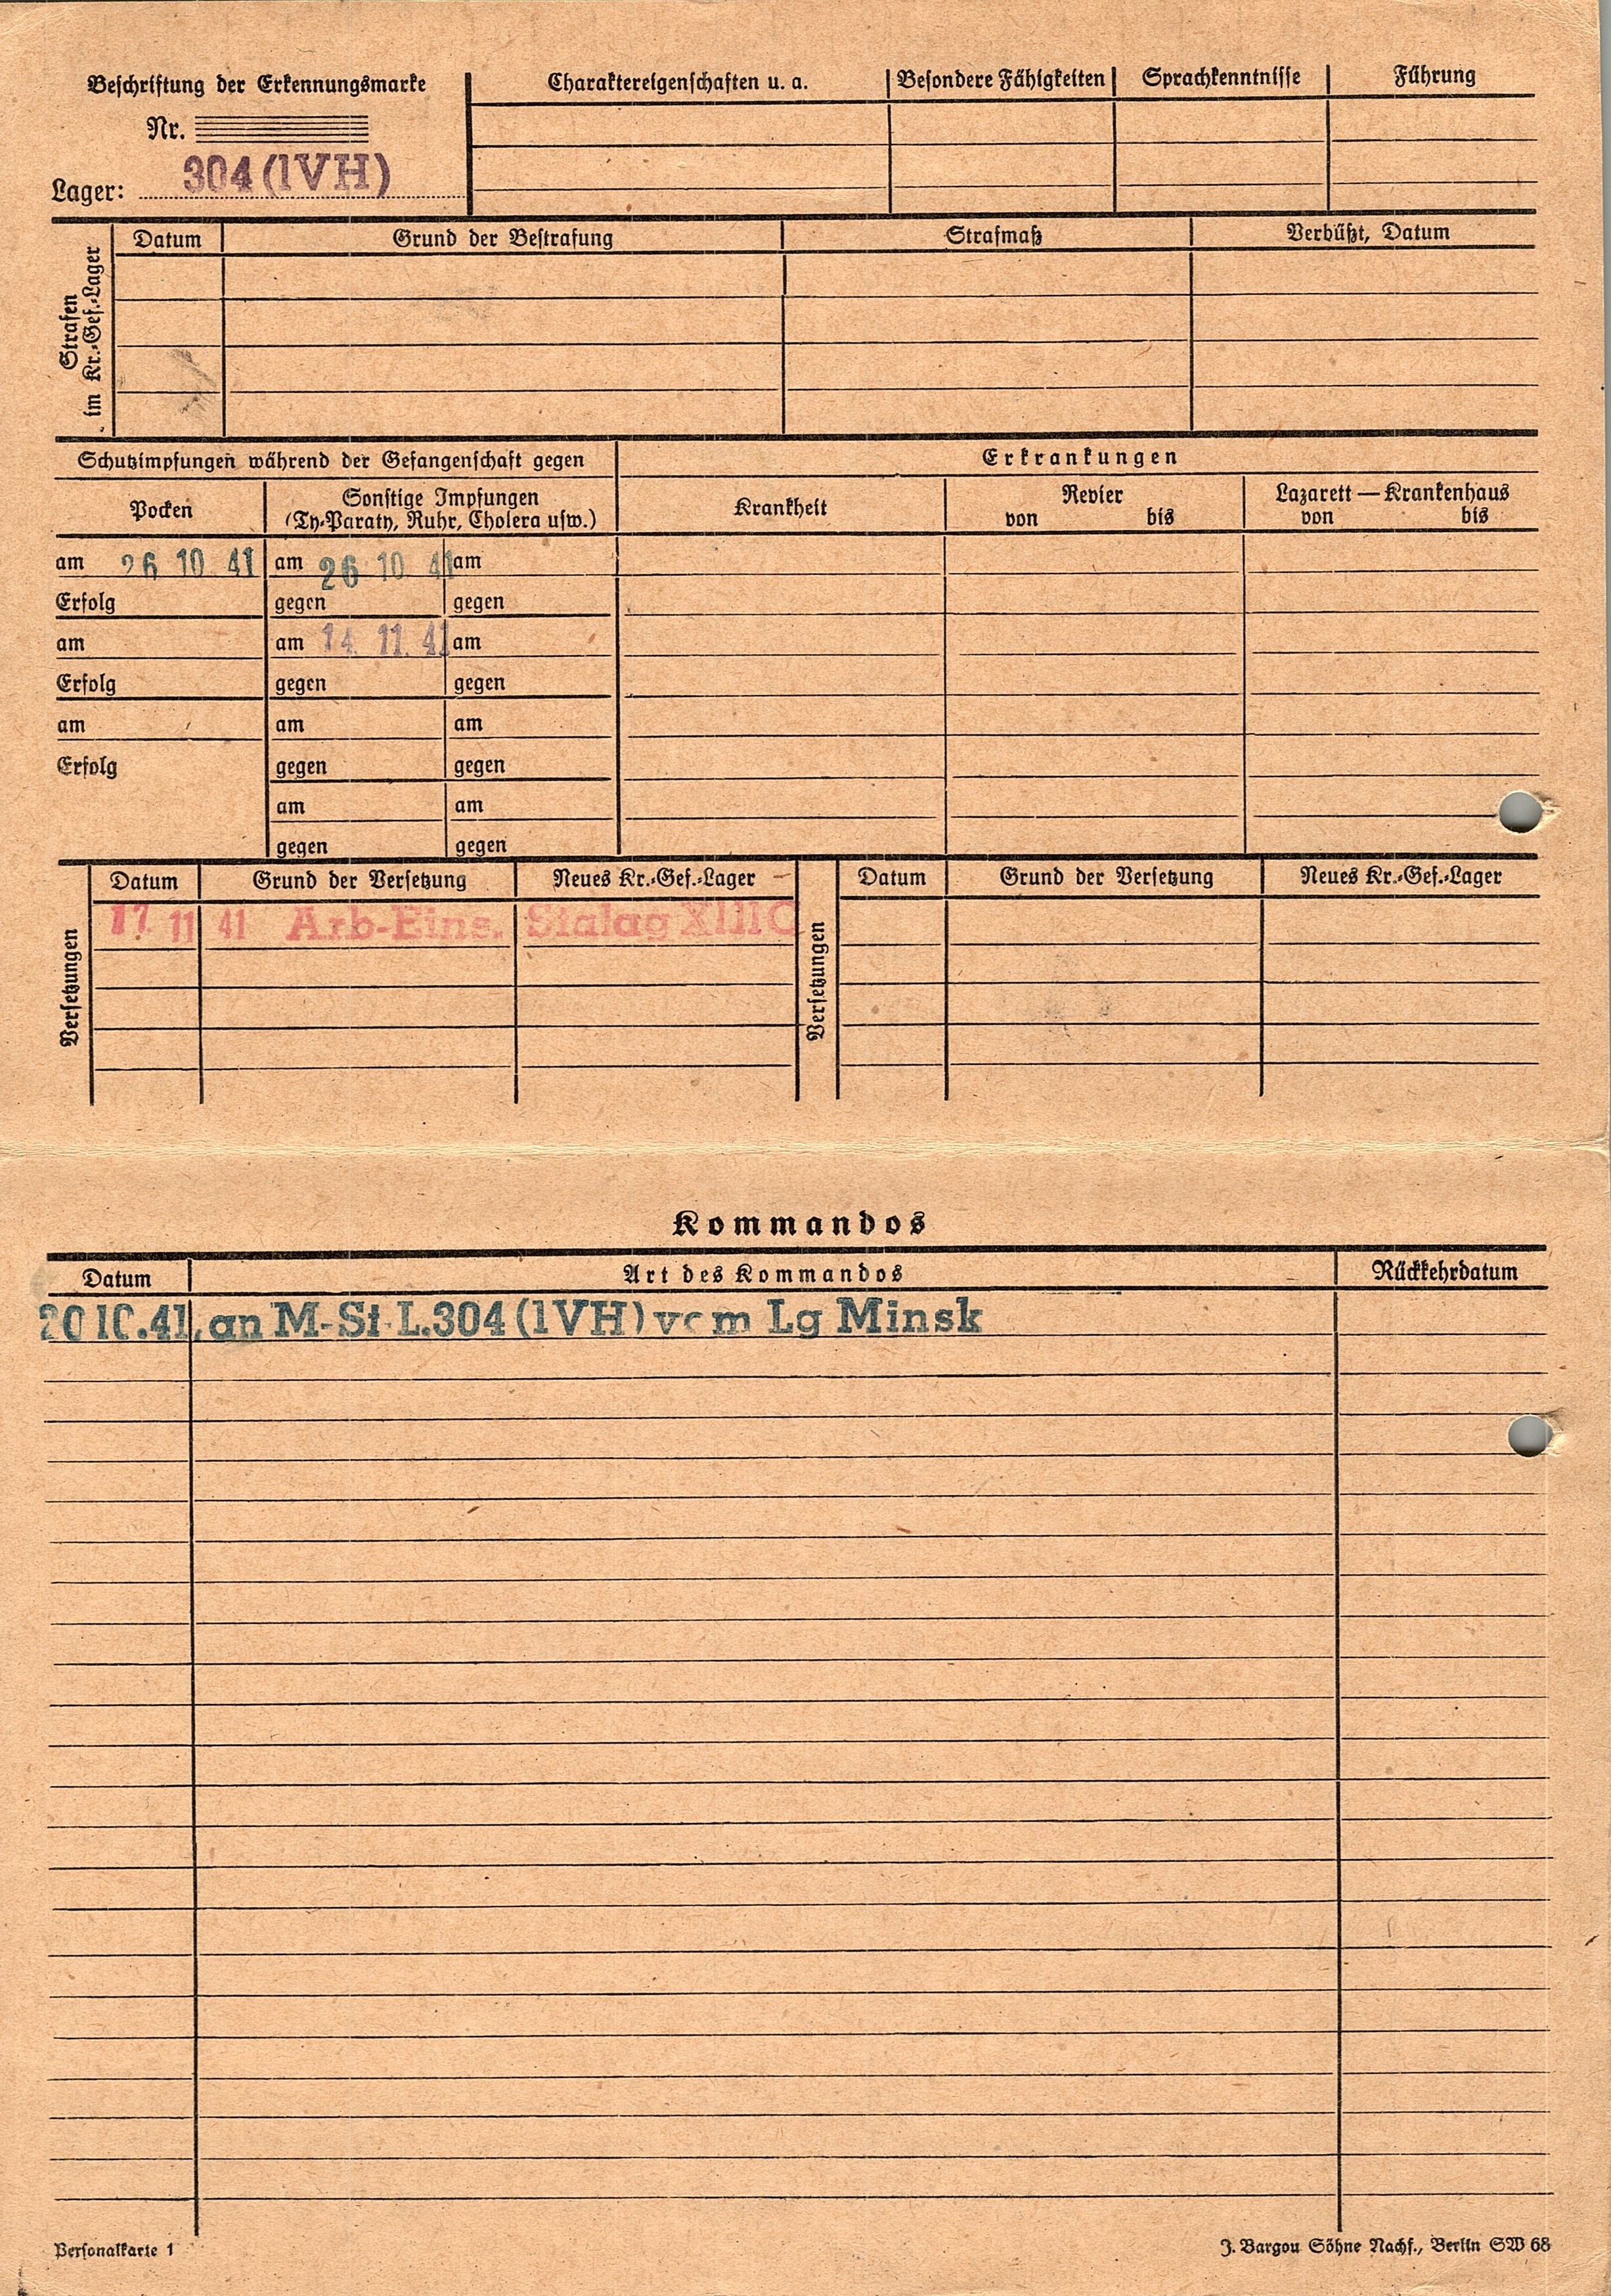 Beschriftung der Erkennungsmarke
Nr.
Lager: 304 (IVH)
Charaktereigenschaften u. a.
Besondere Fähigkeiten
Sprachkenntnisse
Führung
Strafen im Kr.-Gef.-Lager
Datum
Grund der Bestrafung
Strafmaß
Verbüßt, Datum
Schutzimpfungen während der Gefangenschaft gegen
Pocken
Sonstige Impfungen
(Ty-Paraty, Ruhr, Cholera usw.)
am 26 10 41 am 26 10 41 am
Erfolg gegen gegen
am am 14. 11. 41 am
Erfolg gegen gegen
am am am
Erfolg gegen gegen
am am
gegen gegen
Erkrankungen
Krankheit
Revier
von bis
Lazarett — Krankenhaus
von bis
Versetzungen
Datum Grund der Versetzung Neues Kr.-Gef.-Lager
17. 11 41 Arb-Eins. Stalag XIII C
Versetzungen
Datum Grund der Versetzung Neues Kr.-Gef.-Lager
Kommandos
Datum Art des Kommandos Rückkehrdatum
20 10.41. an M-St. L.304 (IVH) vom Lg Minsk
Personalkarte 1
J. Bargou Söhne Nachf., Berlin SW 68